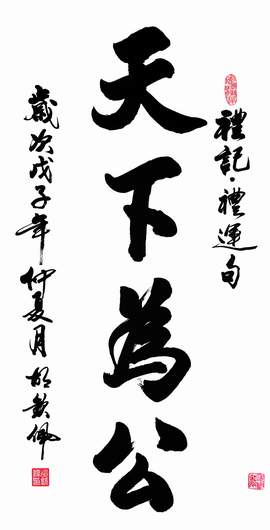 禮記·禮運句
天下為公
歲次戊子年仲夏月胡欽佩